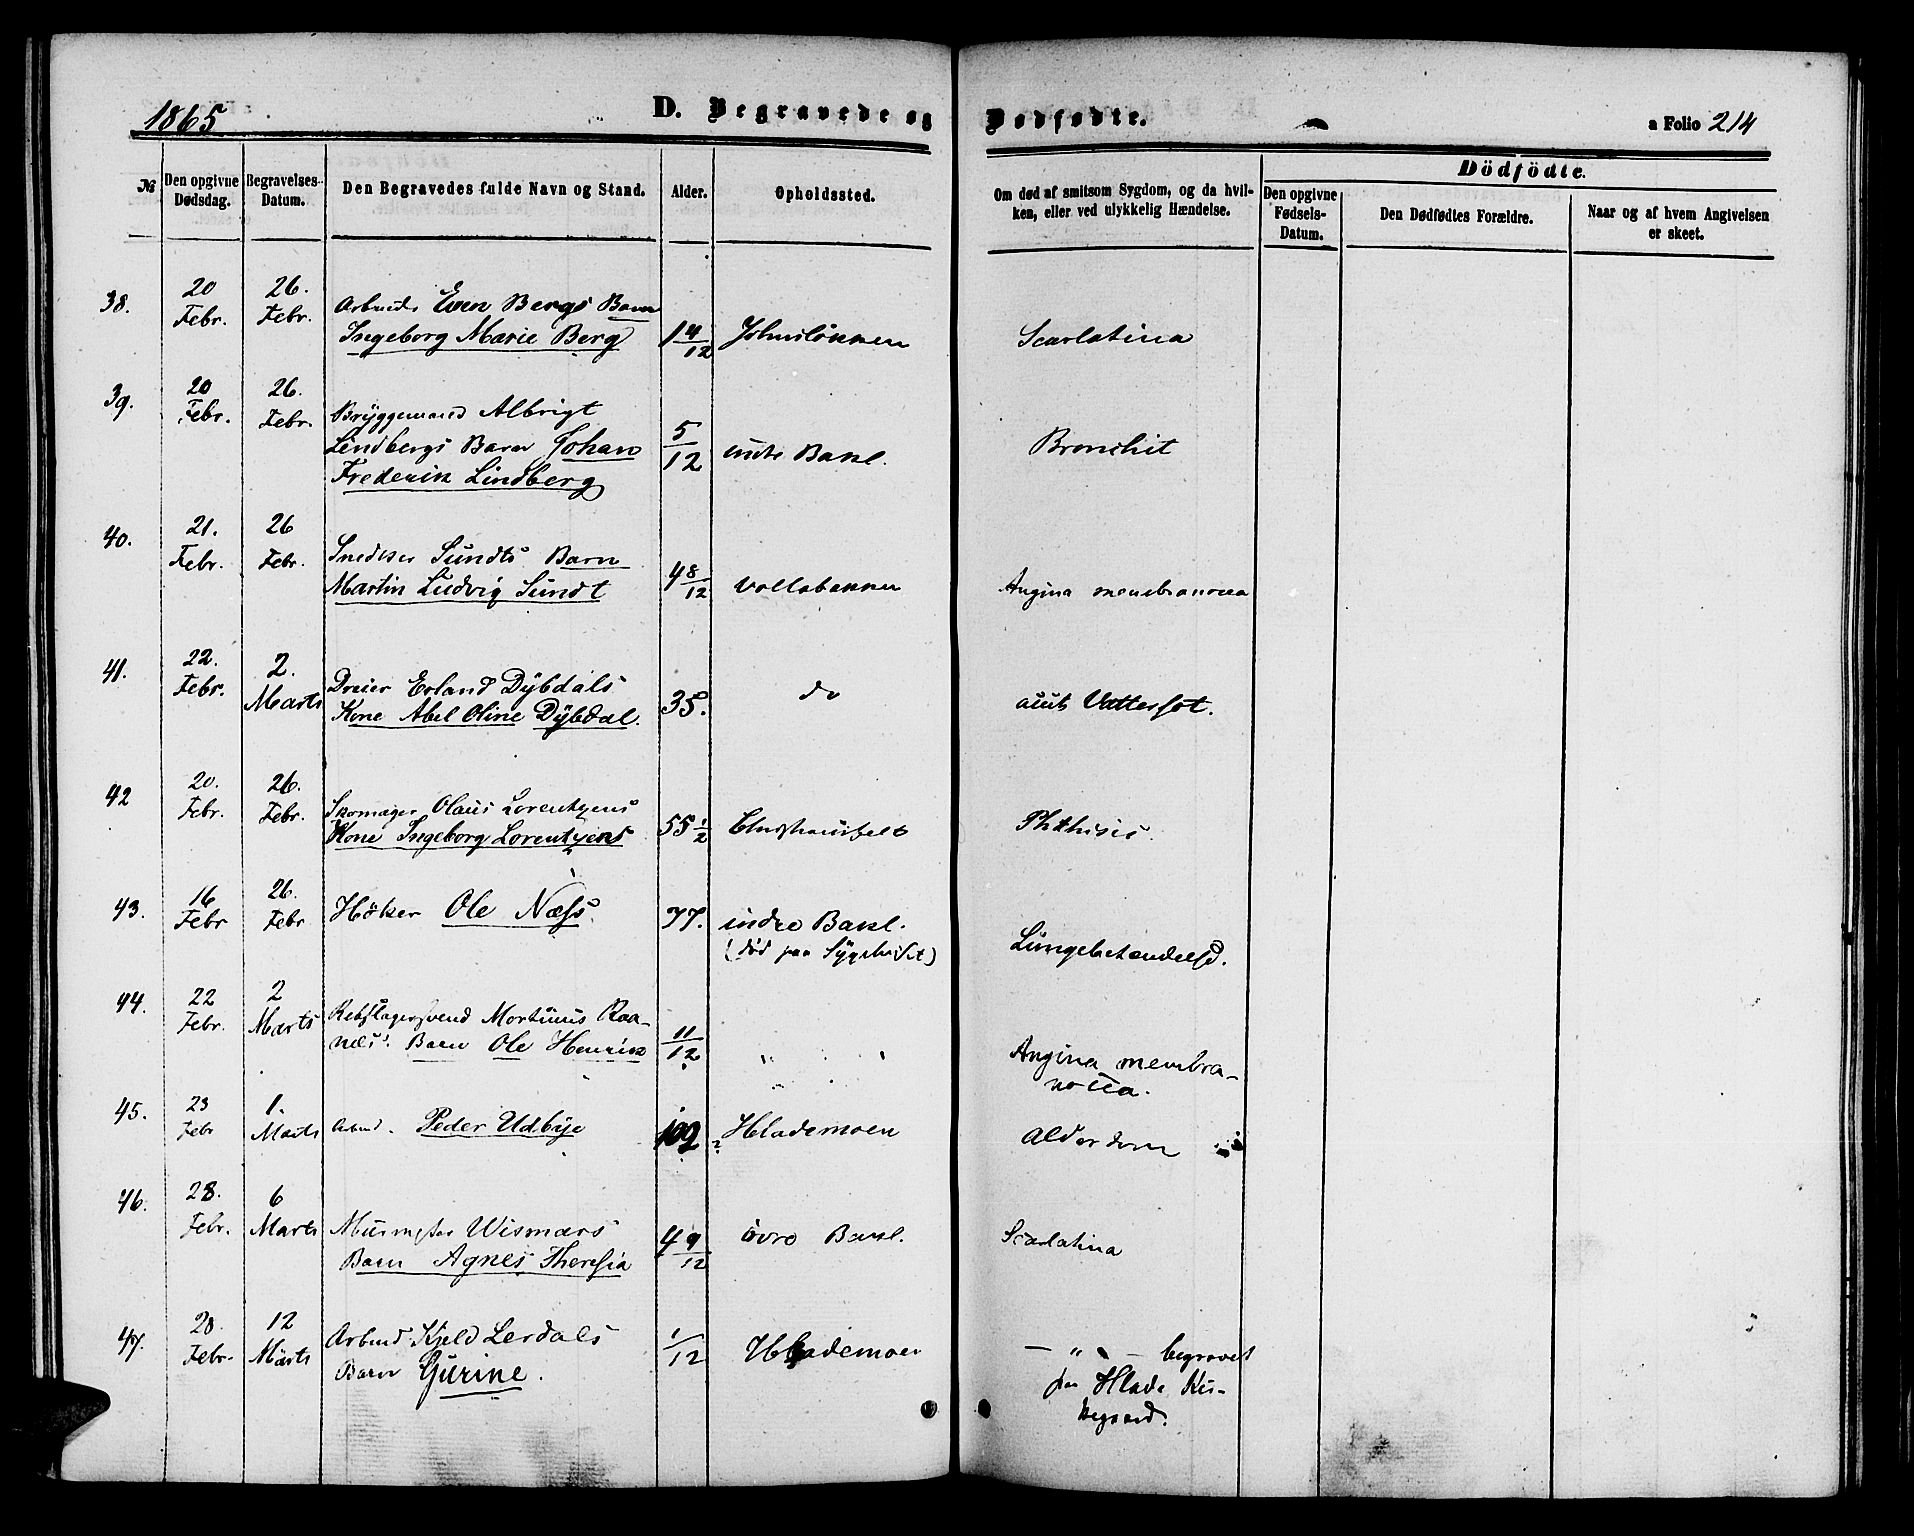 1865
D. Begravede og Dødfødte.
a Folio 214
№
Den opgivne Dødsdag.
Begravelses-Datum.
Den Begravedes fulde Navn og Stand.
Alder.
Opholdssted.
Om død af smitsom Sygdom, og da hvil-
ken, eller ved ulykkelig Hændelse.
Dödfödte.
Den opgivne Fødsels-Datum.
Den Dødfødtes Forældre.
Naar og af hvem Angivelsen er skeet.
38. 20 Febr. 26. Febr. Arbeids Even Bergs Barn
Ingeborg Marie Berg 1 4/12 Scarlatina
39. 20 Febr. 26. Febr. Bryggemand Albrigt
Lindbergs Barn Johan 5/12 Bakl. Bronchit
Frederik Lindberg
40. 21. Febr. 26 Febr. Snedker Sundts Barn
Martin Ludvig Sundt 4 8/12 Vollabakken Angina membranacea
41. 22. Febr. 2. Marts Dreier Erland Dÿbdals
Kone Abel Oline Dÿbdal. 35. do Vattersot.
42 20. Febr. 26. Febr. Skomager Olaus Lorentzens
Kone Ingeborg Lorentzens 55 1/2 Phthisis.
43. 16 Febr 26. Febr Höker Ole Næss. 77. indre Bakl.
(död paa Sÿgehuset) Lungebetændelse.
44. 22 Febr. 2 Marts Rebslagersvend Mortinus Raa-
næs' Barn Ole Henrik 11/12 " " Angina membra-
nacea.
45. 23 Febr 1. Marts Arbmd. Peder Udbÿe 102 ? Hlademoen Alderdom
46. 28. Febr. 6 Marts Wismars
Barn Agnes Theresia 4 9/12 övre Bakl. Scarlatina
47. 28. Febr. 12 Marts Arbmd Kjeld Lerdals
Barn Gurine. 1/12 Hlademoen — " — begravet
paa Hlade Kir-
kegaard.